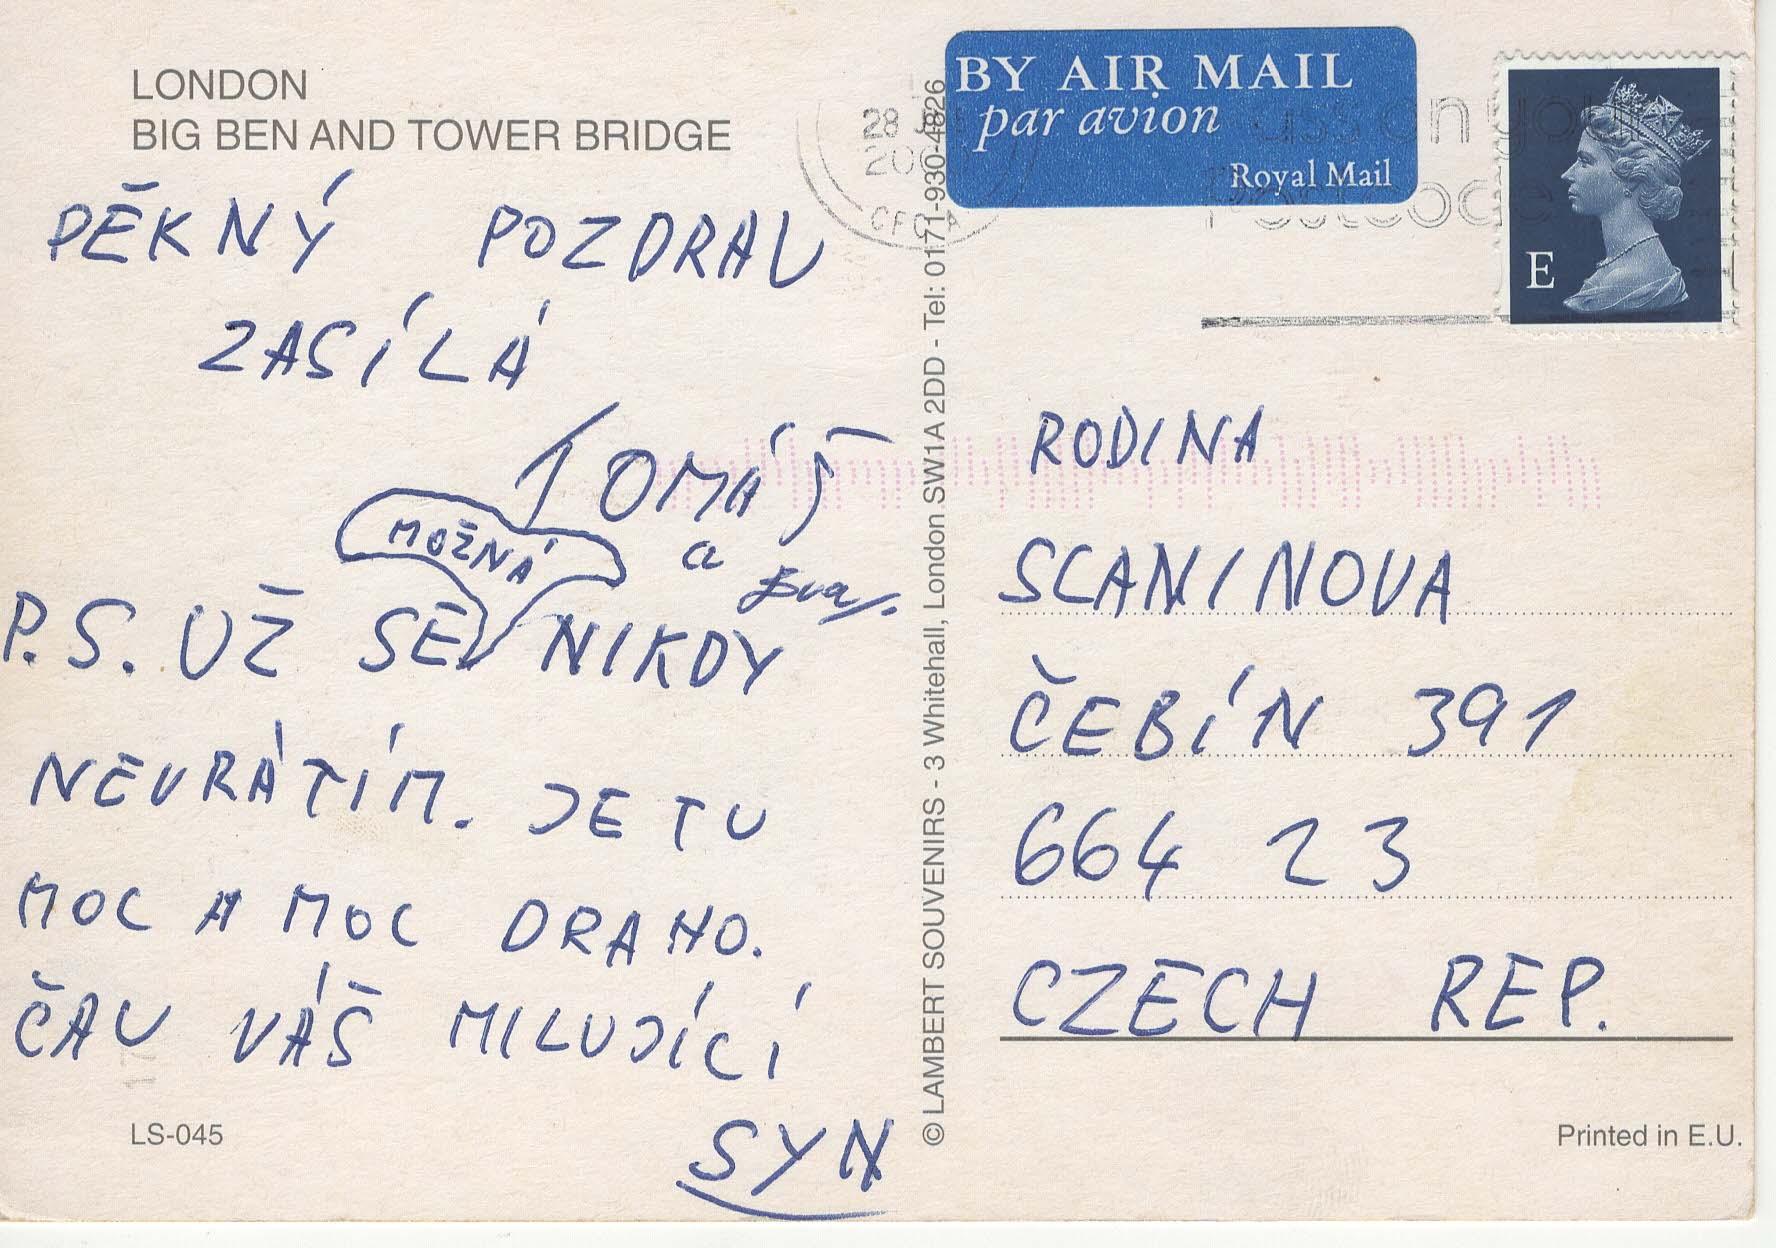 LONDON
BIG BEN AND TOWER BRIDGE
PĚKNÝ POZDRAV
ZASÍLÁ
TOMÁŠ
a Eva
MOŽNÁ
P.S. UŽ SE NIKDY
NEVRÁTÍM. JE TU
MOC A MOC DRAHO.
ČAU VÁŠ MILUJÍCÍ
SYN
LS-045
© LAMBERT SOUVENIRS - 3 Whitehall, London SW1A 2DD - Tel: 0171-930-4826
BY AIR MAIL
par avion
Royal Mail
28
E
RODINA
SCANINOVA
ČEBÍN 391
664 23
CZECH REP.
Printed in E.U.